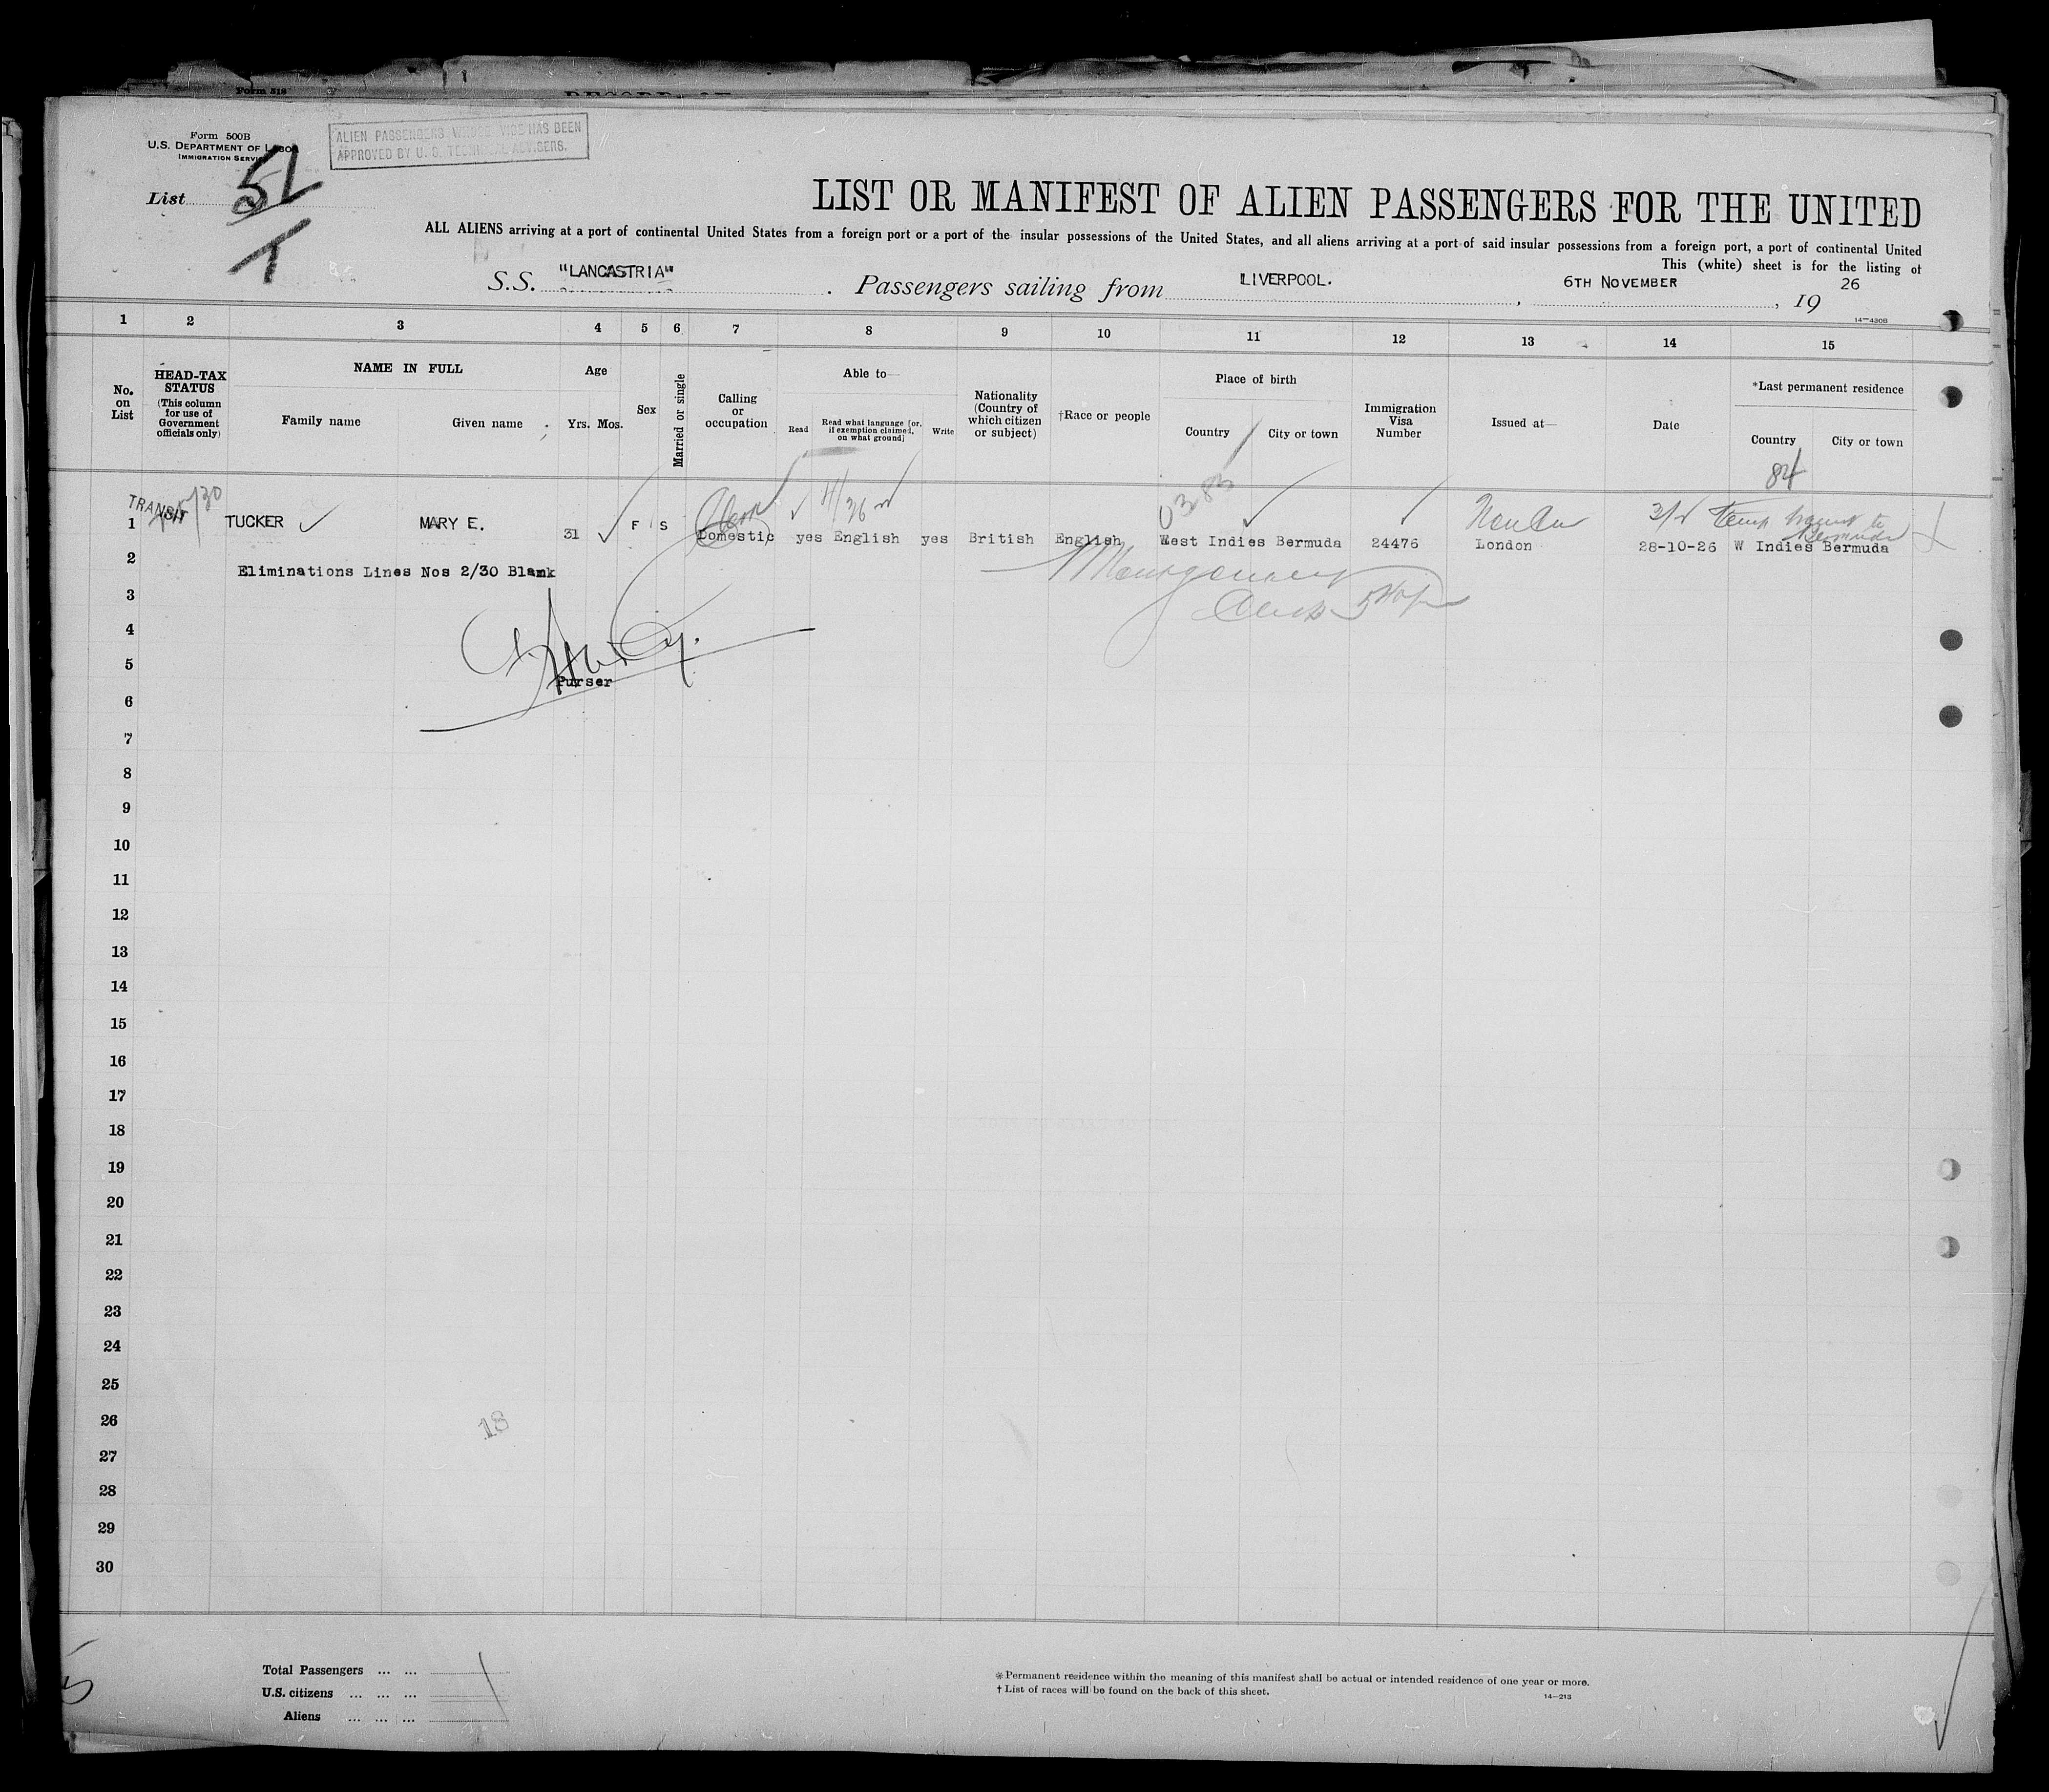 Form 516
Form 500B
U.S. DEPARTMENT OF LABOR
IMMIGRATION SERVICE
ALIEN PASSENGERS WHOSE VISE HAS BEEN
APPROVED BY U. S. TECHNICAL ADVISERS.
List 51
T
LIST OR MANIFEST OF ALIEN PASSENGERS FOR THE UNITED
ALL ALIENS arriving at a port of continental United States from a foreign port or a port of the insular possessions of the United States, and all aliens arriving at a port of said insular possessions from a foreign port, a port of continental United
This (white) sheet is for the listing of
S.S. "LANCASTRIA" . Passengers sailing from LIVERPOOL. , 6TH NOVEMBER , 19 26
14-4208
1 2 3 4 5 6 7 8 9 10 11 12 13 14 15
No. on List
HEAD-TAX STATUS
(This column for use of Government officials only)
NAME IN FULL
Family name Given name
Age
Yrs. Mos.
Sex
Married or single
Calling or occupation
Able to—
Read
Read what language [or, if exemption claimed, on what ground]
Write
Nationality (Country of which citizen or subject)
†Race or people
Place of birth
Country City or town
Immigration Visa Number
Issued at—
Date
*Last permanent residence
Country City or town
84
0383
TRANSIT
Clerk
Non Im
3/2 Temp transit to Bermuda
1 TUCKER MARY E. 31 F S Domestic yes English yes British English West Indies Bermuda 24476 London 28-10-26 W Indies Bermuda
2 Eliminations Lines Nos 2/30 Blank
Montgomery
3
4
5
Purser
6
7
8
9
10
11
12
13
14
15
16
17
18
19
20
21
22
23
24
25
26
18
27
28
29
30
Total Passengers ... ...
U.S. citizens ... ... ...
Aliens ... ... ...
* Permanent residence within the meaning of this manifest shall be actual or intended residence of one year or more.
† List of races will be found on the back of this sheet.
14-213